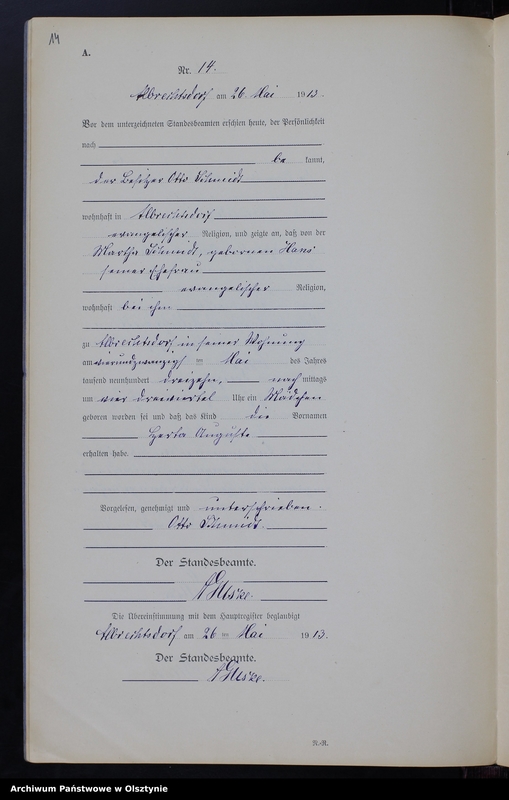 14
A.
Nr. 14.
Albrechtsdorf am 26. Mai 1913.
Vor dem unterzeichneten Standesbeamten erschien heute, der Persönlichkeit
nach
be kannt,
der Besitzer Otto Schmidt
wohnhaft in Albrechtsdorf
evangelischer Religion, und zeigte an, daß von der
Martha Schmidt, geborenen
seiner Ehefrau
evangelischer Religion,
wohnhaft bei ihm
zu Albrechtsdorf in seiner Wohnung
am vierundzwanzigsten Mai des Jahres
tausend neunhundert dreizehn, nach mittags
um vier dreiviertel Uhr ein Mädchen
geboren worden sei und daß das Kind die Vornamen
Herta Auguste
erhalten habe.
Vorgelesen, genehmigt und unterschrieben.
Otto Schmidt.
Der Standesbeamte.
Die Übereinstimmung mit dem Hauptregister beglaubigt
Albrechtsdorf am 26 ten Mai 1913.
Der Standesbeamte.
N.-R.
Archiwum Państwowe w Olsztynie